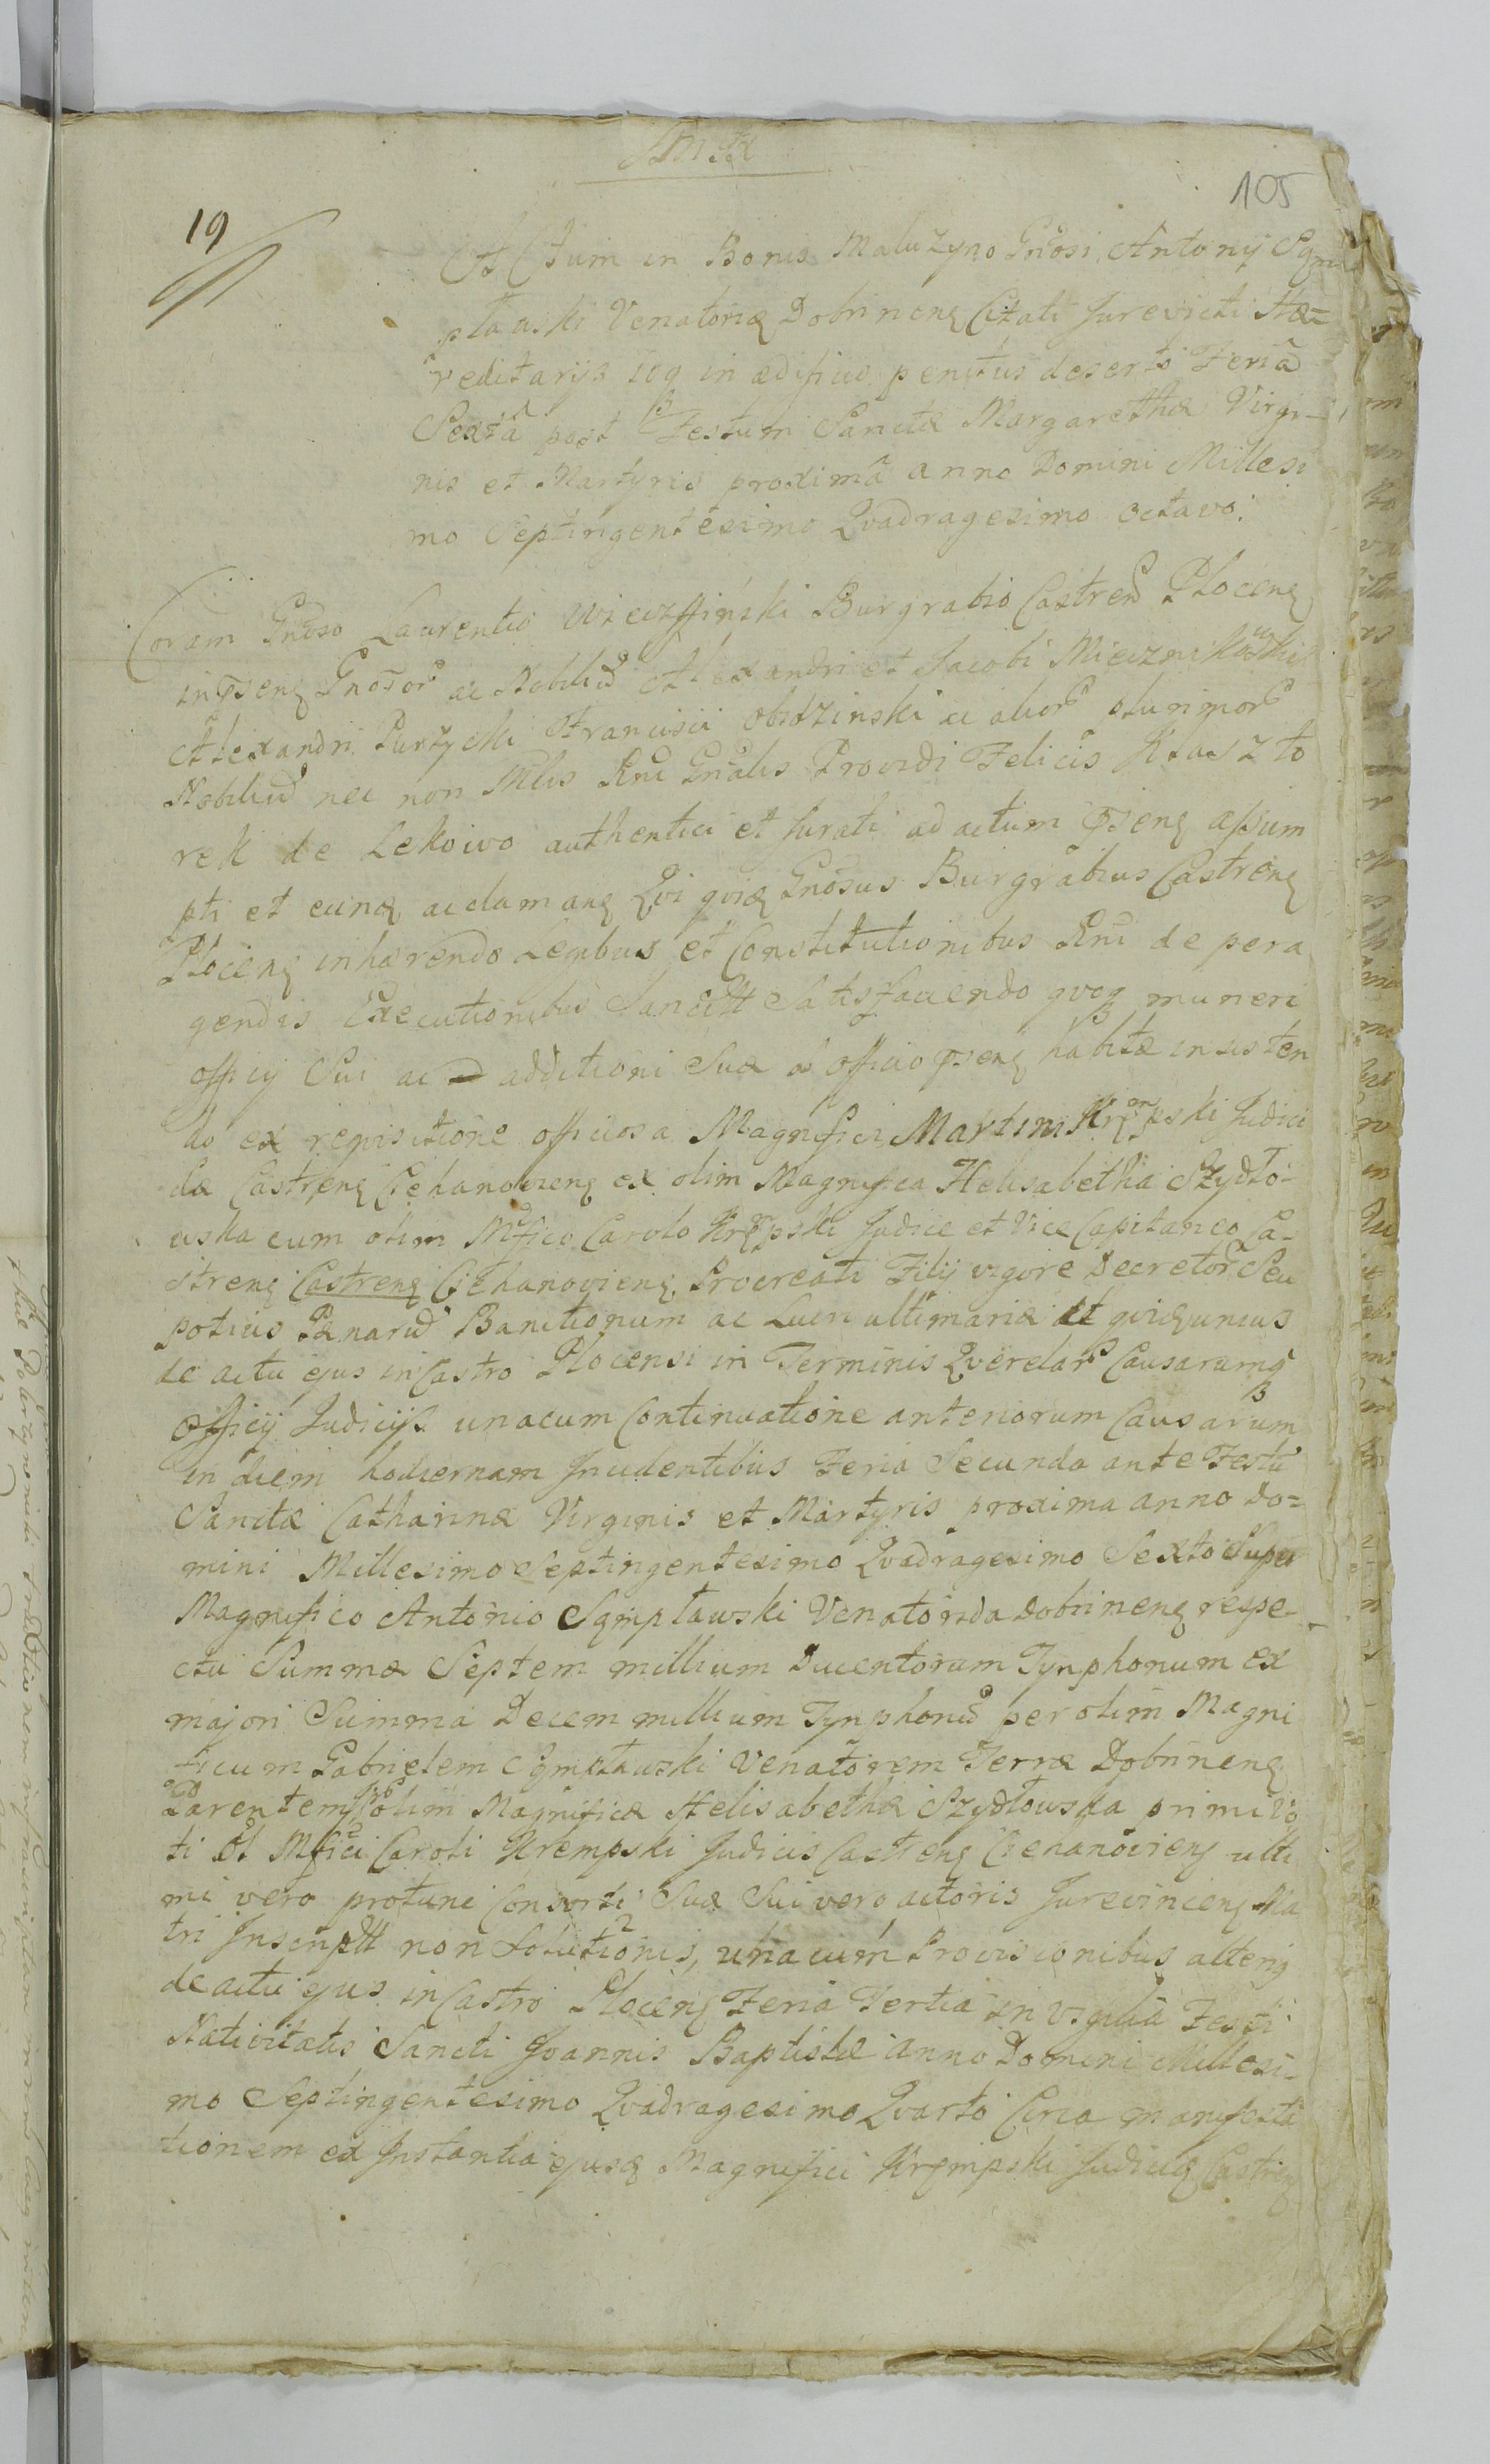 105
19
Actum in Bonis Maluzyno Gnosi Antonij Sqm
pławski Venatoridæ Dobrinenς Citati Jurevicti Hæ=
reditarijs loq in ædificio penitus deserto Feriâ
Sextâ post Festum Sanctæ Margarethæ Virgi-
nis et Martyris proximâ anno Domini Millesi
mo Septingentesimo Qvadragesimo octavo.
Coram Gnoso Laurentio Burgrabio Castren Plocenς
in pṡenς Gnosor ac Nobiliu Alexandri et Jacobi Miecznikowski
Alexandri Purzycki Francisci Obidzinski ac alior plurimor
Nobiliu nec non Mlis Rni Gnalis Providi Felicis Krasz to
rek de Lekowo authentici et Jurati ad actum pṡenς assum
pti et eunς acclamanς Qvi qviς Gnosus Burgrabius Castrenς
Plocenς inhærendo Legibus et Constitutionibus Rni de pera
gendis Executionibus Sancitt Satisfaciendo qvoq muneri
officij Sui ac additioni Suæ ab officio pṡenς habitæ insisten
do ex reqvisitione officiosa Magnifici Martini Krępski Judici
dæ Castrenς Ciehanovienς ex olim Magnifica Helisabetha Szydło-
wska cum olim Mfico Carolo Krępski Judice et Vice Capitaneo Ca-
strenς Castrenς Ciehanovienς Procreati Filij vigore Decretor Seu
potius Pænariu Banitionum ac Lucri ultimariæ et qviςuncus
de actu ejus in Castro Plocensi in Terminis Qverelar Causarumq
officij Judicijs unacum Continuatione anteriorum Causarum
in diem hodiernam Incidentibus Feria Secunda ante Festu
Sanctæ Catharinæ Virginis et Martyris proxima anno Do=
mini Millesimo Septingentesimo Qvadragesimo Sexto Super
Magnifico Antonio Sqmpławski Venatorida Dobrinenς respe-
ctu Summæ Septem millium Ducentorum Tynphonum ex
majori Summa Decem millium Tynphonu per olim Magni
ficum Gabrielem Sqmpławski Venatorem Terræ Dobrinenς
Parentem olim Magnificæ Helisabethæ Szydłowska primi Vo
ti Ol Mfici Caroli Krempski Judicis Castrenς Ciehanovienς ulti
mi vero protunc Consorti Suæ Sui vero actoris Jurevincenς Ma
tri Inscriptt non Solutionis, unacum Provisionibus alterς
de actu ejus in Castro Plocenς Feria Tertia in vigilia Festi
Nativitatis Sancti Joannis Baptistæ anno Domini Millesi-
mo Septingentesimo Qvadragesimo Qvarto Circa manifesta
tionem ex Instantia ejusς Magnifici Krempski Judicis Castrenς